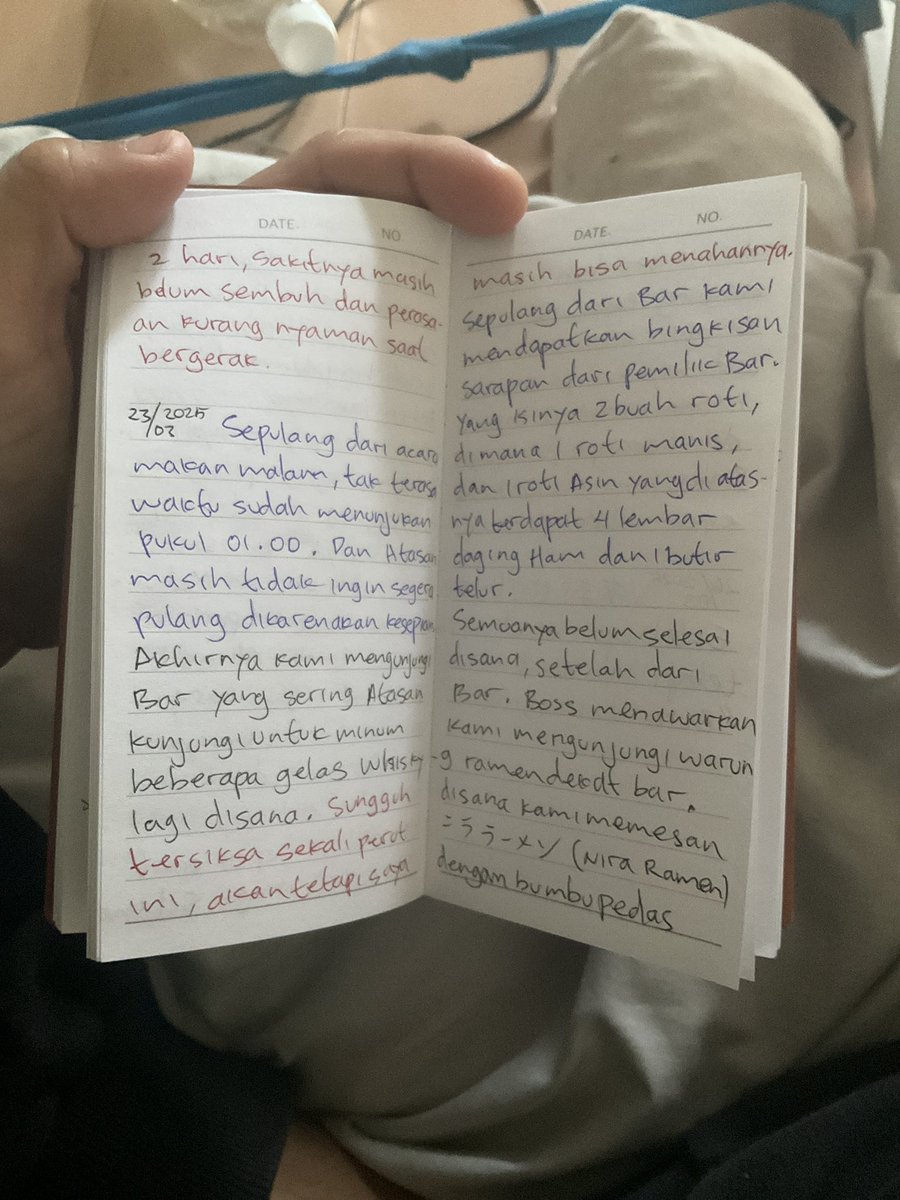 DATE. NO.
2 hari, sakitnya masih
belum sembuh dan perasa-
an kurang nyaman saat
bergerak.
23/02 2025 Sepulang dari acara
makan malam, tak terasa
waktu sudah menunjukan
pukul 01.00. Dan Atasan
masih tidak ingin segera
pulang dikarenakan kesepian.
Akhirnya kami mengunjungi
Bar yang sering Atasan
kunjungi untuk minum
beberapa gelas whisky
lagi disana. Sungguh
tersiksa sekali perut
ini, akan tetapi saya
DATE. NO.
masih bisa menahannya.
Sepulang dari Bar kami
mendapatkan bingkisan
sarapan dari pemilik Bar.
yang isinya 2 buah roti,
dimana 1 roti manis,
dan 1 roti Asin yang di atas-
nya terdapat 4 lembar
daging Ham dan 1 butir
telur.
Semuanya belum selesai
disana, setelah dari
Bar. Boss menawarkan
kami mengunjungi warun
-g ramen dekat bar.
disana kami memesan
ニララーメン (Nira Ramen)
dengam bumbu pedas